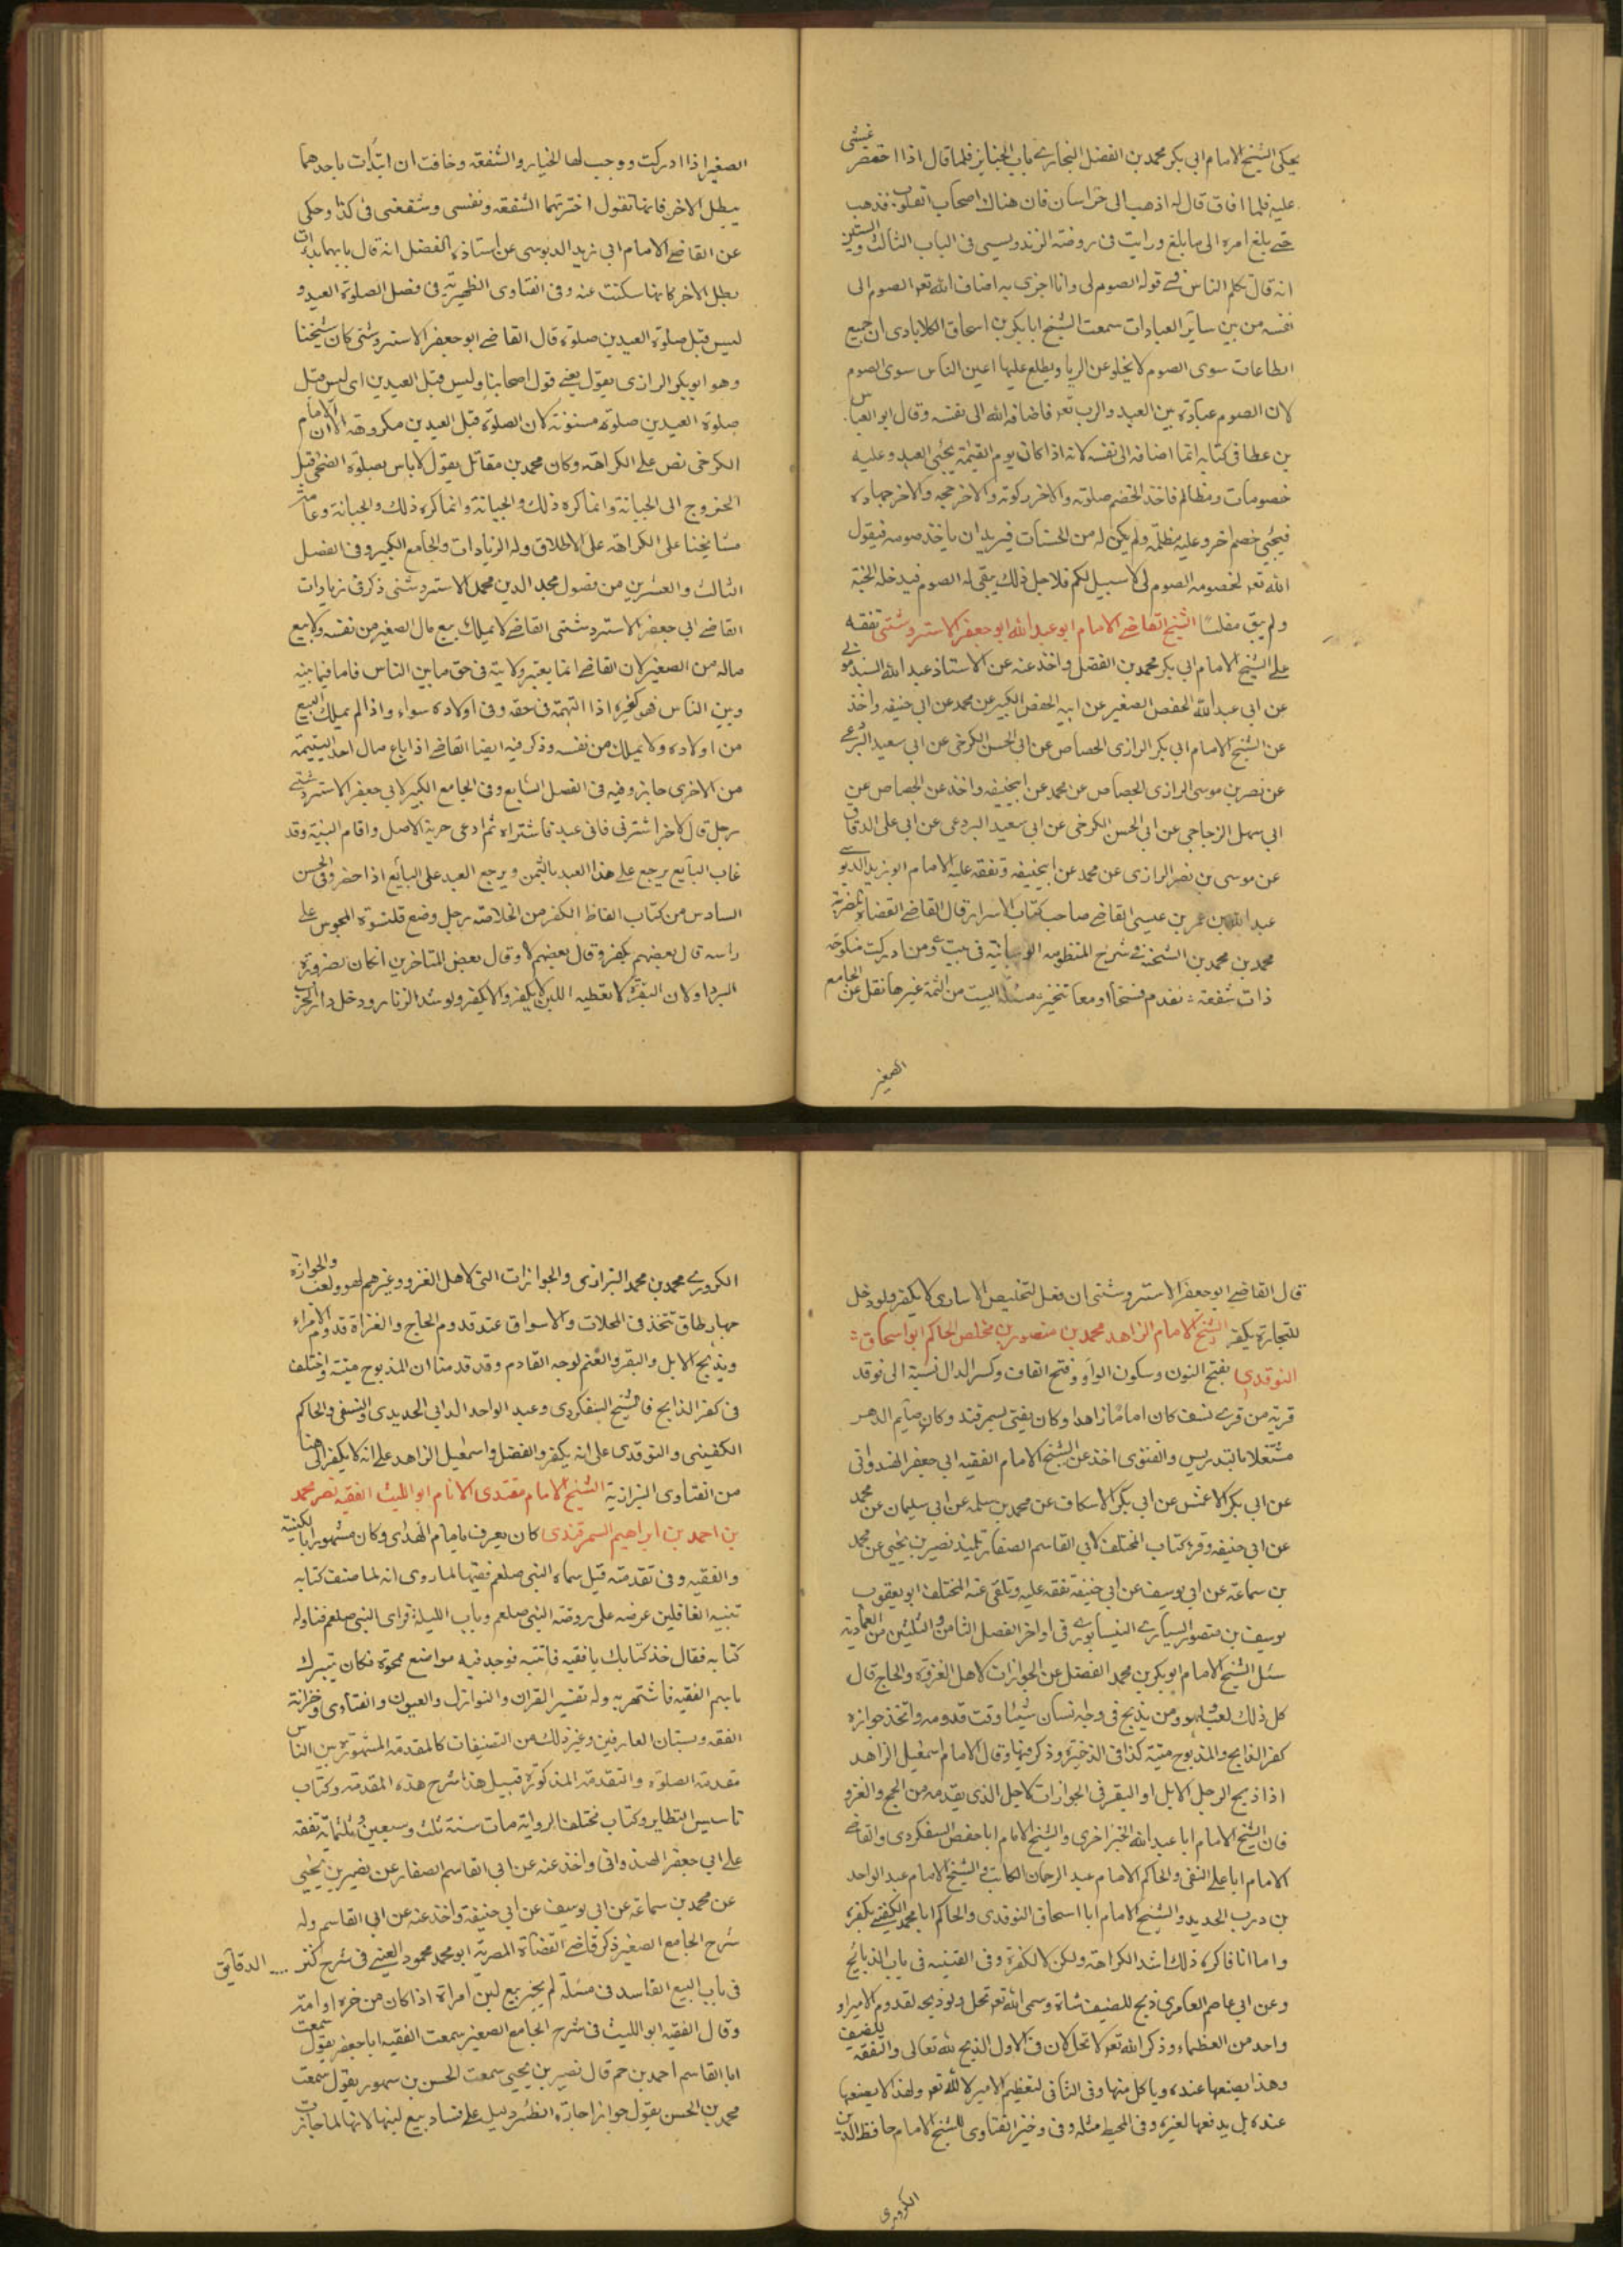 يحكى الشيخ الامام ابي بكر محمد بن الفضل البخارے باب الجنايز فلما قال اذا احتضر غشى
عليه فلما افاق قال له اذهب الى خراسان فان هناك اصحاب القلوب فذهب
حتے بلغ امره الى ما بلغ ورايت فى روضة الزندويسى فى الباب الثالث والستين
انه قال تكلم الناس فے قوله الصوم لى وانا اجزى به اضاف الله تعه الصوم الى
نفسه من بين ساير العبادات سمعت الشيخ ابا بكر بن اسحاق الكلابادى ان جميع
الطاعات سوى الصوم لا يخلو عن الريا ويطلع عليها اعين الناس سوى الصوم
لان الصوم عبادة بين العبد والرب تعه فاضافه الله الى نفسه وقال ابو العباس
بن عطا فى كتابه انما اضافه الى نفسه لانه اذا كان يوم القيمة يجئى العبد وعليه
خصومات ومظالم فاخذ الخصم صلوته والاخر زكوته والاخر حجه والاخر جهاده
فيجئى خصم اخر وعليه مظلمة ولم يكن له من الحسنات فيريد ان ياخذ صومه فيقول
الله تعه لخصومه الصوم لى لا سبيل لكم فلاجل ذلك يبقى له الصوم فيدخله الجنة
ولم يبق مفلسا الشيخ القاضے الامام ابو عبد الله ابو جعفر الاستروشنى تفقه
على الشيخ الامام ابي بكر محمد بن الفضل واخذ عنه عن الاستاذ عبد الله السبذمونى
عن ابى عبد الله الحفص الصغير عن ابيه الحفص الكبير عن محمد عن ابى حنيفه واخذ
عن الشيخ الامام ابي بكر الرازى الجصاص عن ابى الحسن الكرخى عن ابى سعيد البردعے
عن نصر بن موسى الرازى الجصاص عن محمد عن ابيحنيفه واخذ عن الجصاص عن
ابى سهل الزجاجى عن ابى الحسن الكرخى عن ابى سعيد البردعى عن ابى على الدقاق
عن موسى بن نصر الرازى عن محمد عن ابيحنيفه وتفقه عليه الامام ابو زيد الدبوسے
عبد الله بن عمر بن عيسى القاضے صاحب كتاب الاسرار قال القاضے القضاة بمصر
محمد بن محمد بن الشحنة فے شرح المنظومه الوهبانية فى بيت ومن ادركت منكوحة
ذات شفعة تقدم فسخا او معا تتخير مسئلة البيت من التمة غيرها نقل عن الجامع
الصغير
الصغير اذا ادركت ووجب لها الخيار والشفعه وخافت ان ابتدات باحدهما
يبطل الاخر فانما تقول اخترتهما الشفعه ونفسى وشفعنى فى كذا وحكى
عن القاضے الامام ابى زيد الدبوسى عن استاذه الفضل انه قال بايهما بدات
بطل الاخر كانما سكتت عنه وفى الفتاوى الظهيرية فى فصل الصلوة العيد و
ليس قبل صلوة العيدين صلوة قال القاضے ابو جعفر الاستروشنى كان شيخنا
وهو ابو بكر الرازى يقول يعنے قول اصحابنا وليس قبل العيدين اى ليس قبل
صلوة العيدين صلوة مسنونة لان الصلوة قبل العيدين مكروهة الا ان الامام
الكرخى نص على الكراهة وكان محمد بن مقاتل يقول لا باس بصلوة الضحى قبل
الخروج الى الجبانة وانما كره ذلك والجبانة وانما كره ذلك والجبانة وعامة
مشايخنا على الكراهة على الاطلاق وله الزيادات والجامع الكبير وفى الفصل
الثالث والعشرين من فصول مجد الدين محمد الاستروشنى ذكر فى زيادات
القاضے ابى جعفر الاستروشنى القاضے لا يملك بيع مال الصغير من نفسه ولا بيع
ماله من الصغير لان القاضے انما يعتبر ولايته فى حق ما بين الناس فاما فيما بينه
وبين الناس فهو كغيره اذا التهمة فى حقه وفى اولاده سواء واذا لم يملك البيع
من اولاده ولا يملك من نفسه وذكر فيه ايضا القاضے اذا باع مال احد اليتيمة
من الاخرى جايز وفيه فى الفصل السابع وفى الجامع الكبير لابى جعفر الاستروشنے
رجل قال لاخر اشترنى فانى عبد فاشتراه ثم ادعى حرية الاصل واقام البينة وقد
غاب البايع يرجع على هذا العبد بالثمن ويرجع العبد على البايع اذا حضر وفى الجنس
السادس من كتاب الفاظ الكفر من الخلاصة رجل وضع قلنسوة المجوس على
راسه قال بعضهم يكفر وقال بعضهم لا وقال بعض المتاخرين ان كان لضرورة
البرد او لان البقرة لا تعطيه اللبن لا يكفر والا يكفر ولو شد الزنار ودخل دار الحرب
قال القاضے ابو جعفر الاستروشنى ان فعل لتخليص الاسارى لا يكفر ولو دخل
للتجارة يكفر الشيخ الامام الزاهد محمد بن منصور بن مخلص الحاكم ابو اسحاق
النوقدى بفتح النون وسكون الواو وفتح القاف وكسر الدال نسبة الى نوقد
قرية من قرے نسف كان اماما زاهدا وكان يفتى بسمرقند وكان صايم الدهر
مشتغلا بالتدريس والفتوى اخذ عن الشيخ الامام الفقيه ابى جعفر الهندوانى
عن ابى بكر الاعمش عن ابى بكر الاسكاف عن محمد بن سلمه عن ابى سليمان عن محمد
عن ابى حنيفه وقرء كتاب المختلف لابى القاسم الصفار تلميذ نصير بن يحيى عن محمد
بن سماعة عن ابى يوسف عن ابى حنيفة تفقه عليه وتلقى عنه المختلف ابو يعقوب
يوسف بن منصور السيارے النيسابورے فى اواخر الفصل الثامن والثلثين من العمادية
سئل الشيخ الامام ابو بكر بن محمد الفضل عن الجوازات لاهل الغزوة والحاج قال
كل ذلك لعب ولهو ومن يذبح فى وجه نسان شيئا وقت قدومه واتخذ جوازه
كفر الذابح والمذبوح ميتة كذا فى الذخيرة وذكر فيها وقال الامام اسمعيل الزاهد
اذا ذبح الرجل الابل او البقر فى الجوازات لاجل الذى يقدمه من الحج والغزو
فان الشيخ الامام ابا عبد الله الخيزاخرى والشيخ الامام ابا حفص السفكردى والقاضے
الامام ابا على النسفى والحاكم الامام عبد الرحمان الكاتب والشيخ الامام عبد الواحد
بن درب الحديد والشيخ الامام ابا اسحاق النوقدى والحاكم ابا محمد الكفينے يكفره
واما انا فاكره ذلك اشد الكراهة ولكن لا اكفره وفى القنيه فى باب الذبائح
وعن ابى عاصم العامرى ذبح للضيف شاة وسمى الله تعه تحل ولو ذبحه لقدوم الامير او
واحد من العظماء وذكر الله تعه لا تحل لان فى الاول الذبح لله تعالى والنفقة للضيف
وهذا يضعها عنده وياكل منها وفى الثانى لتعظيم الامير لا لله تعه ولهذا لا يضعها
عنده بل يدفعها لغيره وفى المحيط مثله وفى وخيز الفتاوى للشيخ الامام حافظ الدين
الكرورى
الكرورے محمد بن محمد البزازى والجوازات التى لاهل الغزو وغيرهم لهو ولعب والجوازة
جهار طاق تتخذ فى المحلات والاسواق عند قدوم الحاج والغزاة قدوم الامراء
ويذبح الابل والبقر والغنم لوجه القادم وقد قدمنا ان المذبوح ميتة واختلف
فى كفر الذابح فالشيخ السفكردى وعبد الواحد الدابى الحديدى والنسفى والحاكم
الكفينى والنوقدى على انه يكفر والفضل واسمعيل الزاهد على انه لا يكفر الى هنا
من الفتاوى البزازية الشيخ الامام مقتدى الانام ابو الليث الفقيه نصر محمد
بن احمد بن ابراهيم السمرقندى كان يعرف بامام الهدى وكان مشهورا بالكنية
والفقيه وفى تقدمته قيل سماه النبى صلعم فقيها لما روى انه لما صنف كتابه
تنبيه الغافلين عرضه على روضة النبى صلعم وباب الليلة فراى النبى صلعم فناوله
كتابه فقال خذ كتابك يا فقيه فانتبه فوجد فيه مواضع ممحوة فكان يتبرك
باسم الفقيه فاشتهر به وله تفسير القران والنوازل والعيون والفتاوى وخزانة
الفقه وبستان العارفين وغير ذلك من التصنيفات كالمقدمة المشهورة بين الناس
مقدمة الصلوة والتقدمة المذكورة قبيل هذا شرح هذه المقدمة وكتاب
تاسيس النظاير وكتاب مختلف الرواية مات سنة ثلث وسبعين وثلثماية تفقه
على ابى جعفر الهندوانى واخذ عنه عن ابى القاسم الصفار عن نصير بن يحيى
عن محمد بن سماعة عن ابى يوسف عن ابى حنيفة واخذ عنه عن ابى القاسم وله
شرح الجامع الصغير ذكر قاضے القضاة المصرية ابو محمد محمود العينے فى شرح كنز .... الدقايق
فى باب البيع الفاسد فى مسئلة لم يجز بيع لبن امراة اذا كان من حره او امة
وقال الفقيه ابو الليث فى شرح الجامع الصغير سمعت الفقيه ابا جعفر يقول سمعت
ابا القاسم احمد بن حم قال نصير بن يحيى سمعت الحسن بن سهور يقول سمعت
محمد بن الحسن يقول جواز اجارة الظئر دليل على فساد بيع لبنها لانها لما جازت